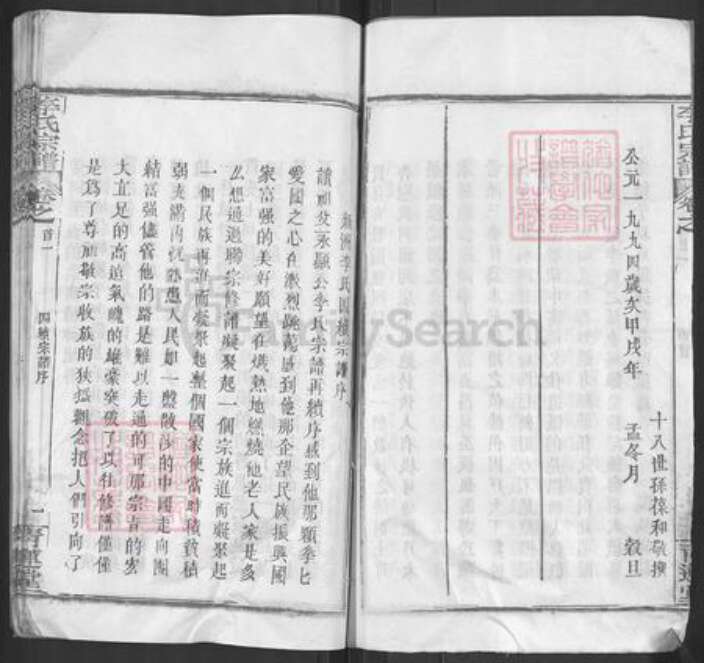 李氏宗譜
卷之
公元一九九四歲次甲戌年 孟冬月 穀旦
十八世孫葆和敬撰
李氏四續宗譜序
讀祖父永顯公李氏宗譜再續序感到他那顆拳匕
愛國之心在激烈跳蕩感到他那企望民族振興國
家富強的美好願望在熾熱地燃燒他老人家是多
么想通過聯宗修譜凝聚起一個宗族進而凝聚起
一個民族再進而凝聚起整個國家使當時積貧積
弱夫人民如一盤散沙的中國走向團
結富強儘管他的路是難以走通的可那宗旨的宏
大立足的高遠氣魄的雄豪突破了以往修譜僅僅
是爲了尊祖敬宗收族的狹隘觀念把人們引向了
李氏宗譜
卷之
首一
四續宗譜序
一
FamilySearch